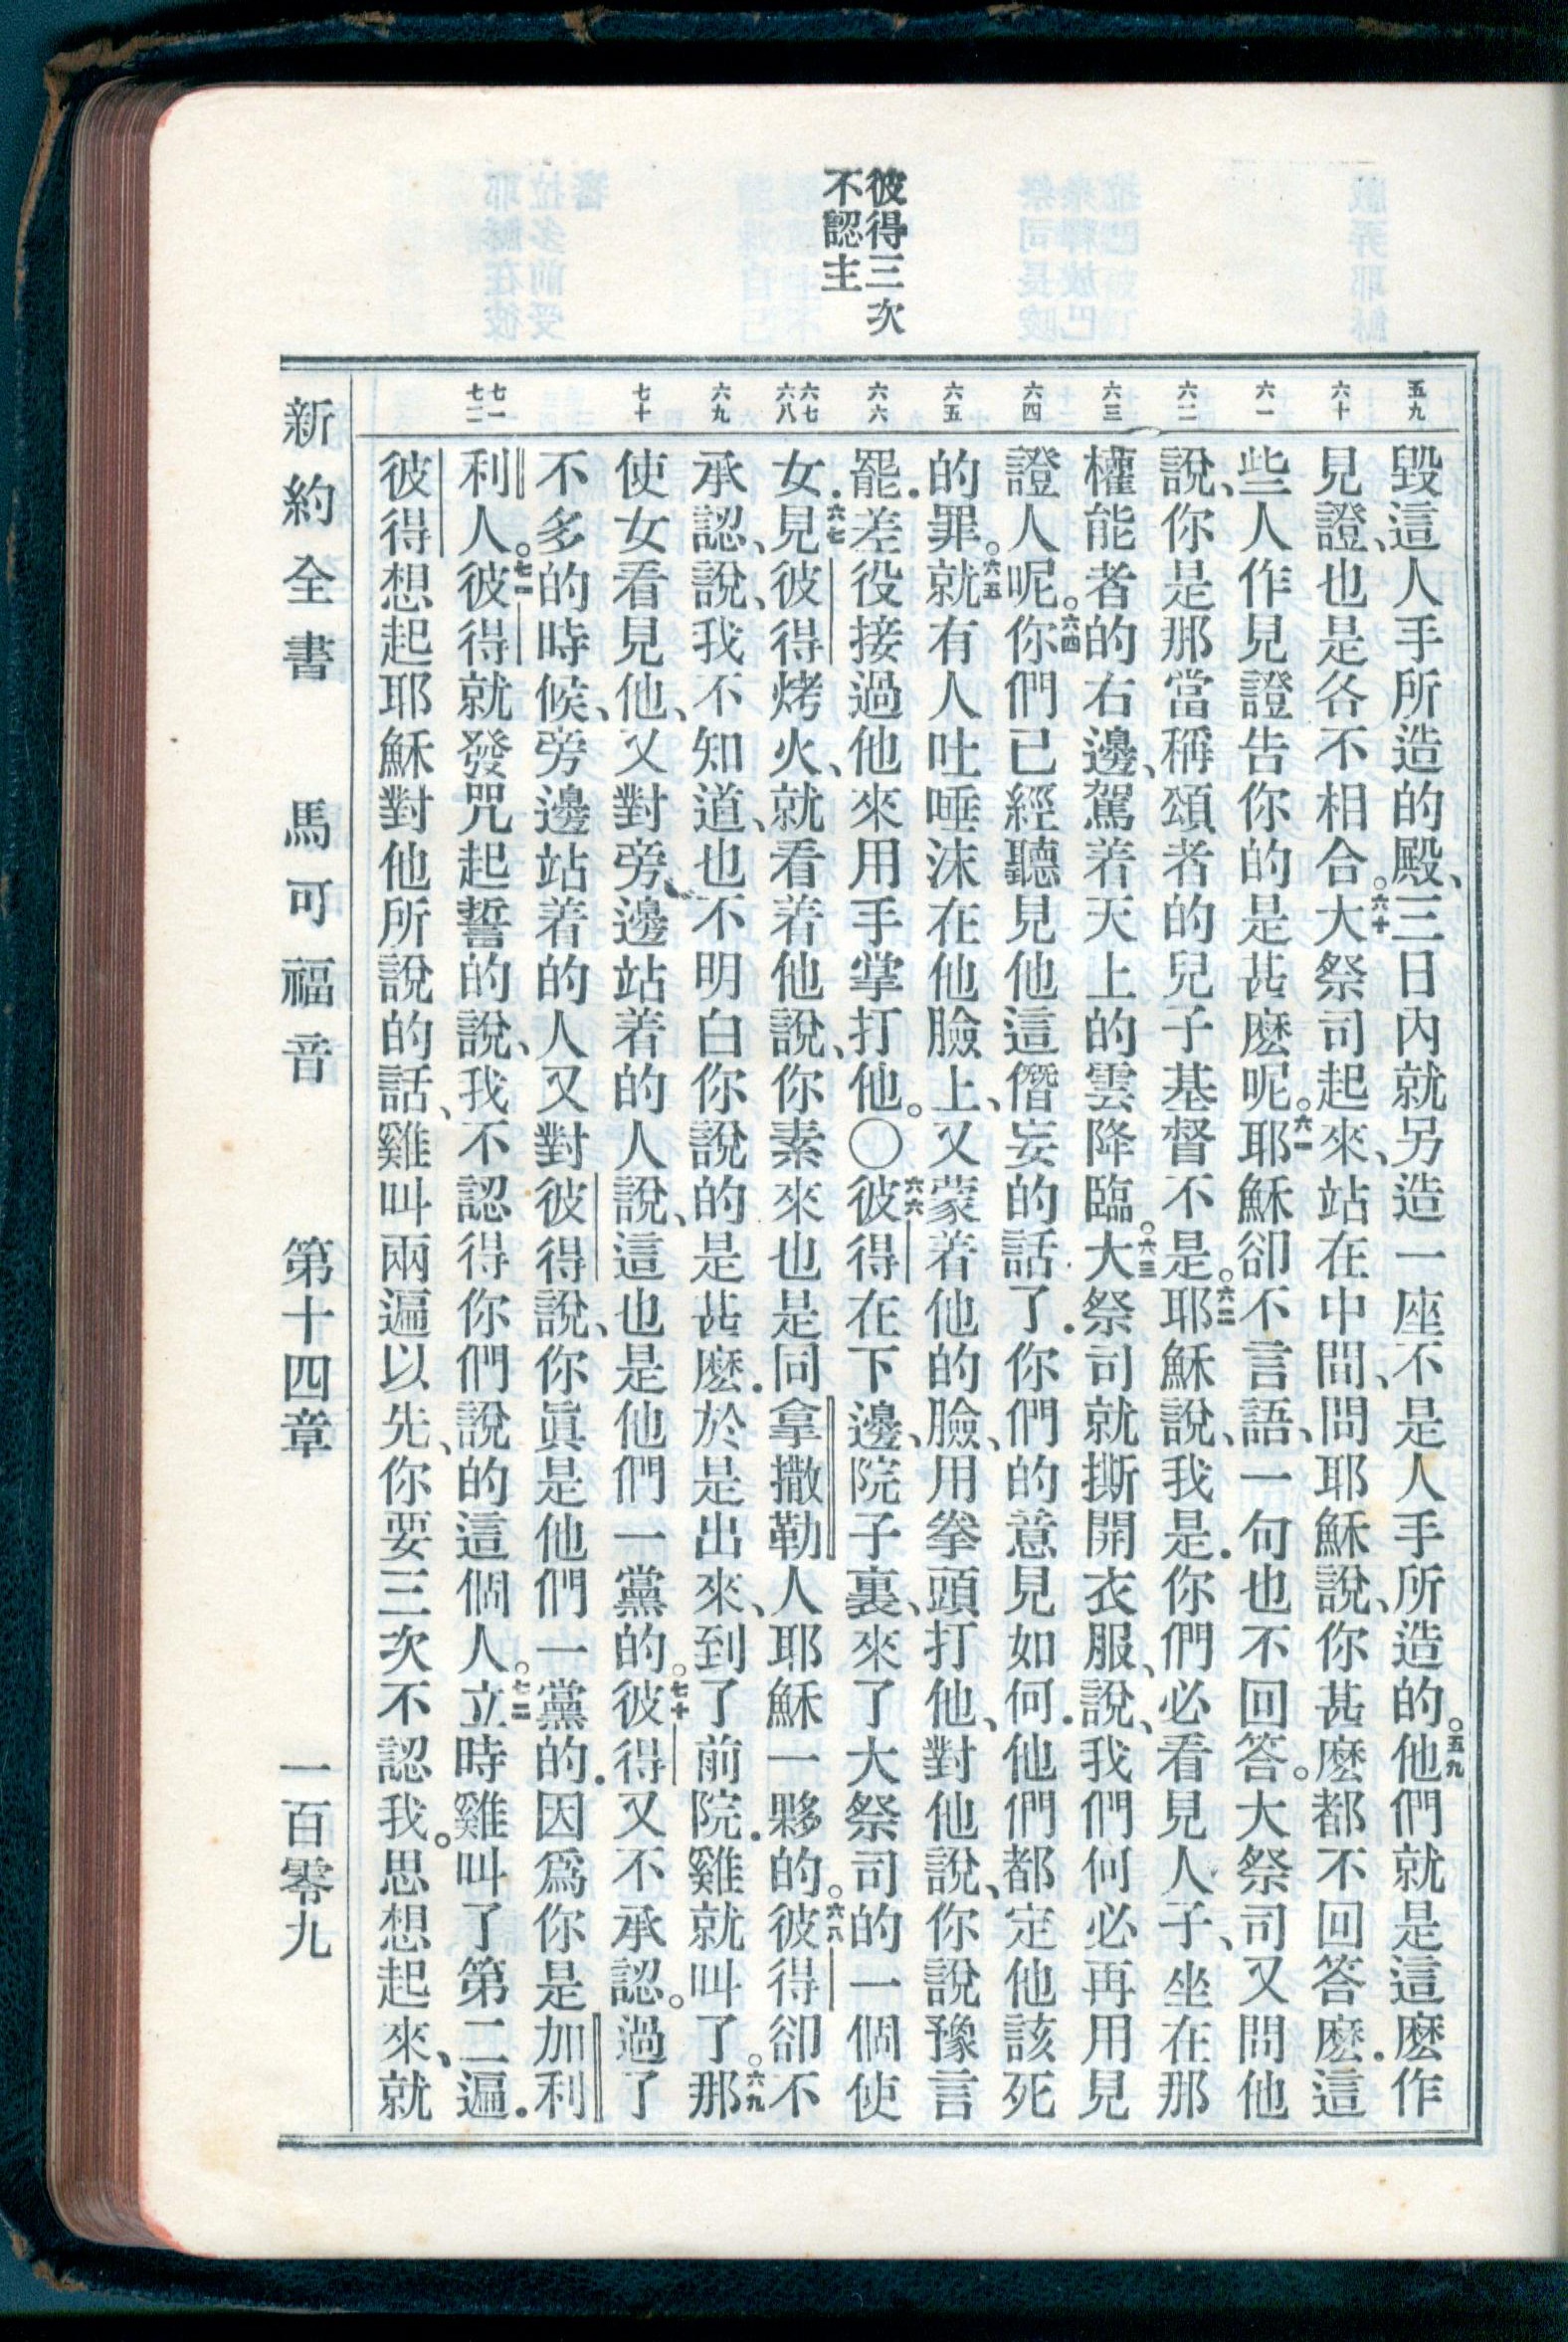 彼得三次
不認主
五九
六十
六一
六二
六三
六四
六五
六六
六七
六八
六九
七十
七一
七二
毀這人手所造的殿、三日內就另造一座不是人手所造的。五九他們就是這麽作
見證、也是各不相合。六十大祭司起來、站在中間、問耶穌說、你甚麽都不回答麽.這
些人作見證告你的是甚麽呢。六一耶穌卻不言語、一句也不回答。大祭司又問他
說、你是那當稱頌者的兒子基督不是。六二耶穌說、我是.你們必看見人子、坐在那
權能者的右邊、駕着天上的雲降臨。六三大祭司就撕開衣服、說、我們何必再用見
證人呢。六四你們已經聽見他這僭妄的話了.你們的意見如何.他們都定他該死
的罪。六五就有人吐唾沫在他臉上、又蒙着他的臉、用拳頭打他、對他說、你說豫言
罷.差役接過他來用手掌打他。〇六六彼得在下邊、院子裏、來了大祭司的一個使
女.六七見彼得烤火、就看着他說、你素來也是同拿撒勒人耶穌一夥的。六八彼得卻不
承認、說、我不知道、也不明白你說的是甚麽.於是出來、到了前院.雞就叫了。六九那
使女看見他、又對旁邊站着的人說、這也是他們一黨的。七十彼得又不承認。過了
不多的時候、旁邊站着的人又對彼得說、你眞是他們一黨的.因爲你是加利
利人。七一彼得就發咒起誓的說、我不認得你們說的這個人。七二立時雞叫了第二遍.
彼得想起耶穌對他所說的話、雞叫兩遍以先、你要三次不認我。思想起來、就
新約全書 馬可福音 第十四章 一百零九